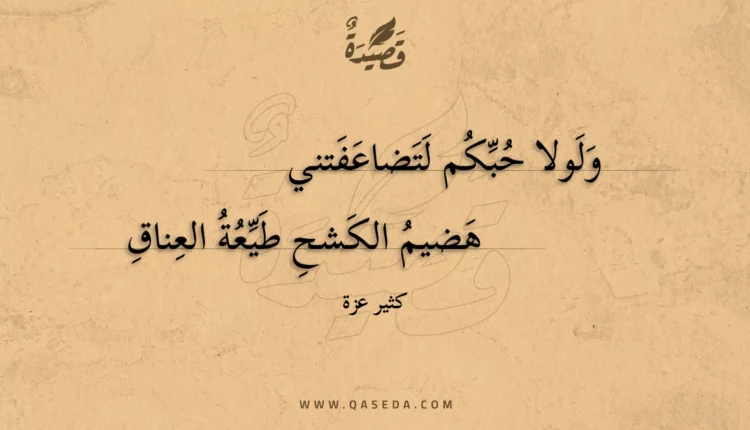 قَصِيدَةٌ
وَلَولا حُبِّكُم لَتَضاعَفَتني
هَضيمُ الكَشحِ طَيِّعَةُ العِناقِ
كثير عزة
WWW.QASEDA.COM